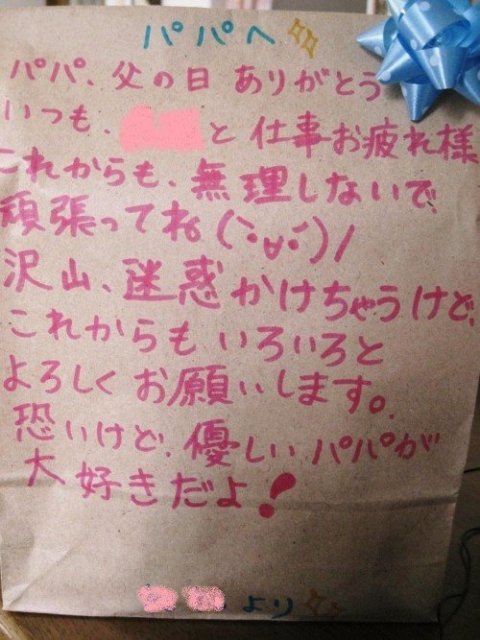 パパへ
パパ、父の日ありがとう
いつも、と仕事お疲れ様
これからも、無理しないで
頑張ってね(•᷄ᴗ•᷅)/
沢山、迷惑かけちゃうけど、
これからもいろいろと
よろしくお願いします。
恐いけど、優しいパパが
大好きだよ!
より